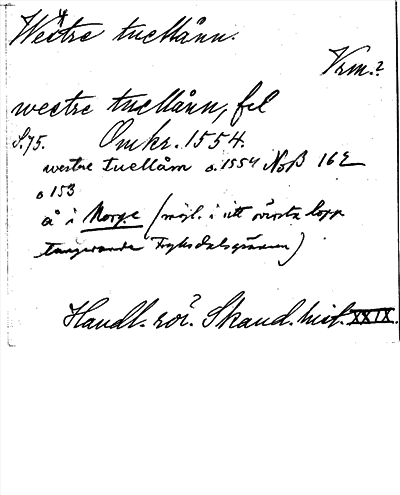 Westre tuellånn.
Vrm.?
westre tuellånn, fel
S.75. Omkr. 1554.
westre tuellåm o. 1554 NoB 16 s
o 153
å i Norge (möjl. i ett översta lopp
tangerande Fryksdalsgränsen)
Handl. rör. Skand. hist. XXIX.